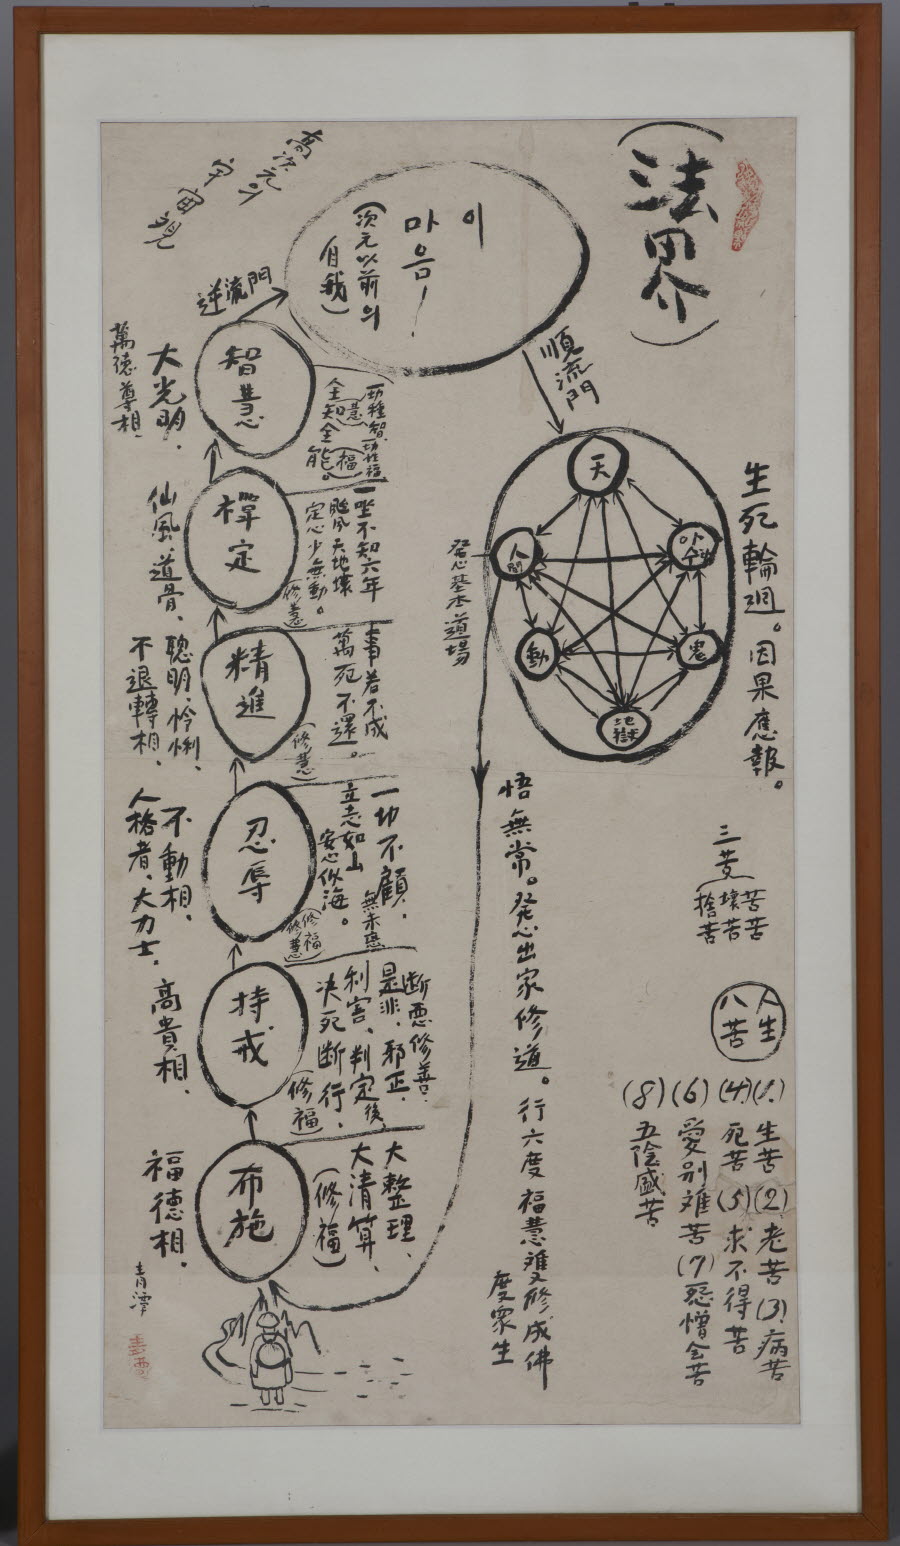 (法界)
이
마음!
(次元以前의
自我)
高次元
宇宙
逆流門
順流門
天
人間
아수라
動
鬼
地獄
發心基本道場
生死輪廻。因果應報。
三苦
苦苦
壞苦
人生
八苦
(1.)生苦(2)老苦(3)病苦
(4)死苦(5)求不得苦
(6)愛別難苦(7)怨憎会苦
(8)五陰盛苦
悟無常。發心出家修道。行六度福慧雙修成佛
度衆生
智慧
一切種智
全知
全能
福
大光明、
萬德尊相、
禪定
一坐不知六年
颱風天地壞
定心少無動。
(修慧)
仙風、道骨、
精進
事若不成
萬死不還。
(修慧)
聰明、怜悧、
不退轉相、
忍辱
一切不顧、
立志如山
安心似海。
(修福
修慧)
不動相、
人格者、大力士、
持戒
断悪修善、
是非、邪正、
利害、判定後、
決死断行、
(修福)
高貴相、
布施
大整理、
大清算、
(修福)
福德相、
青潭